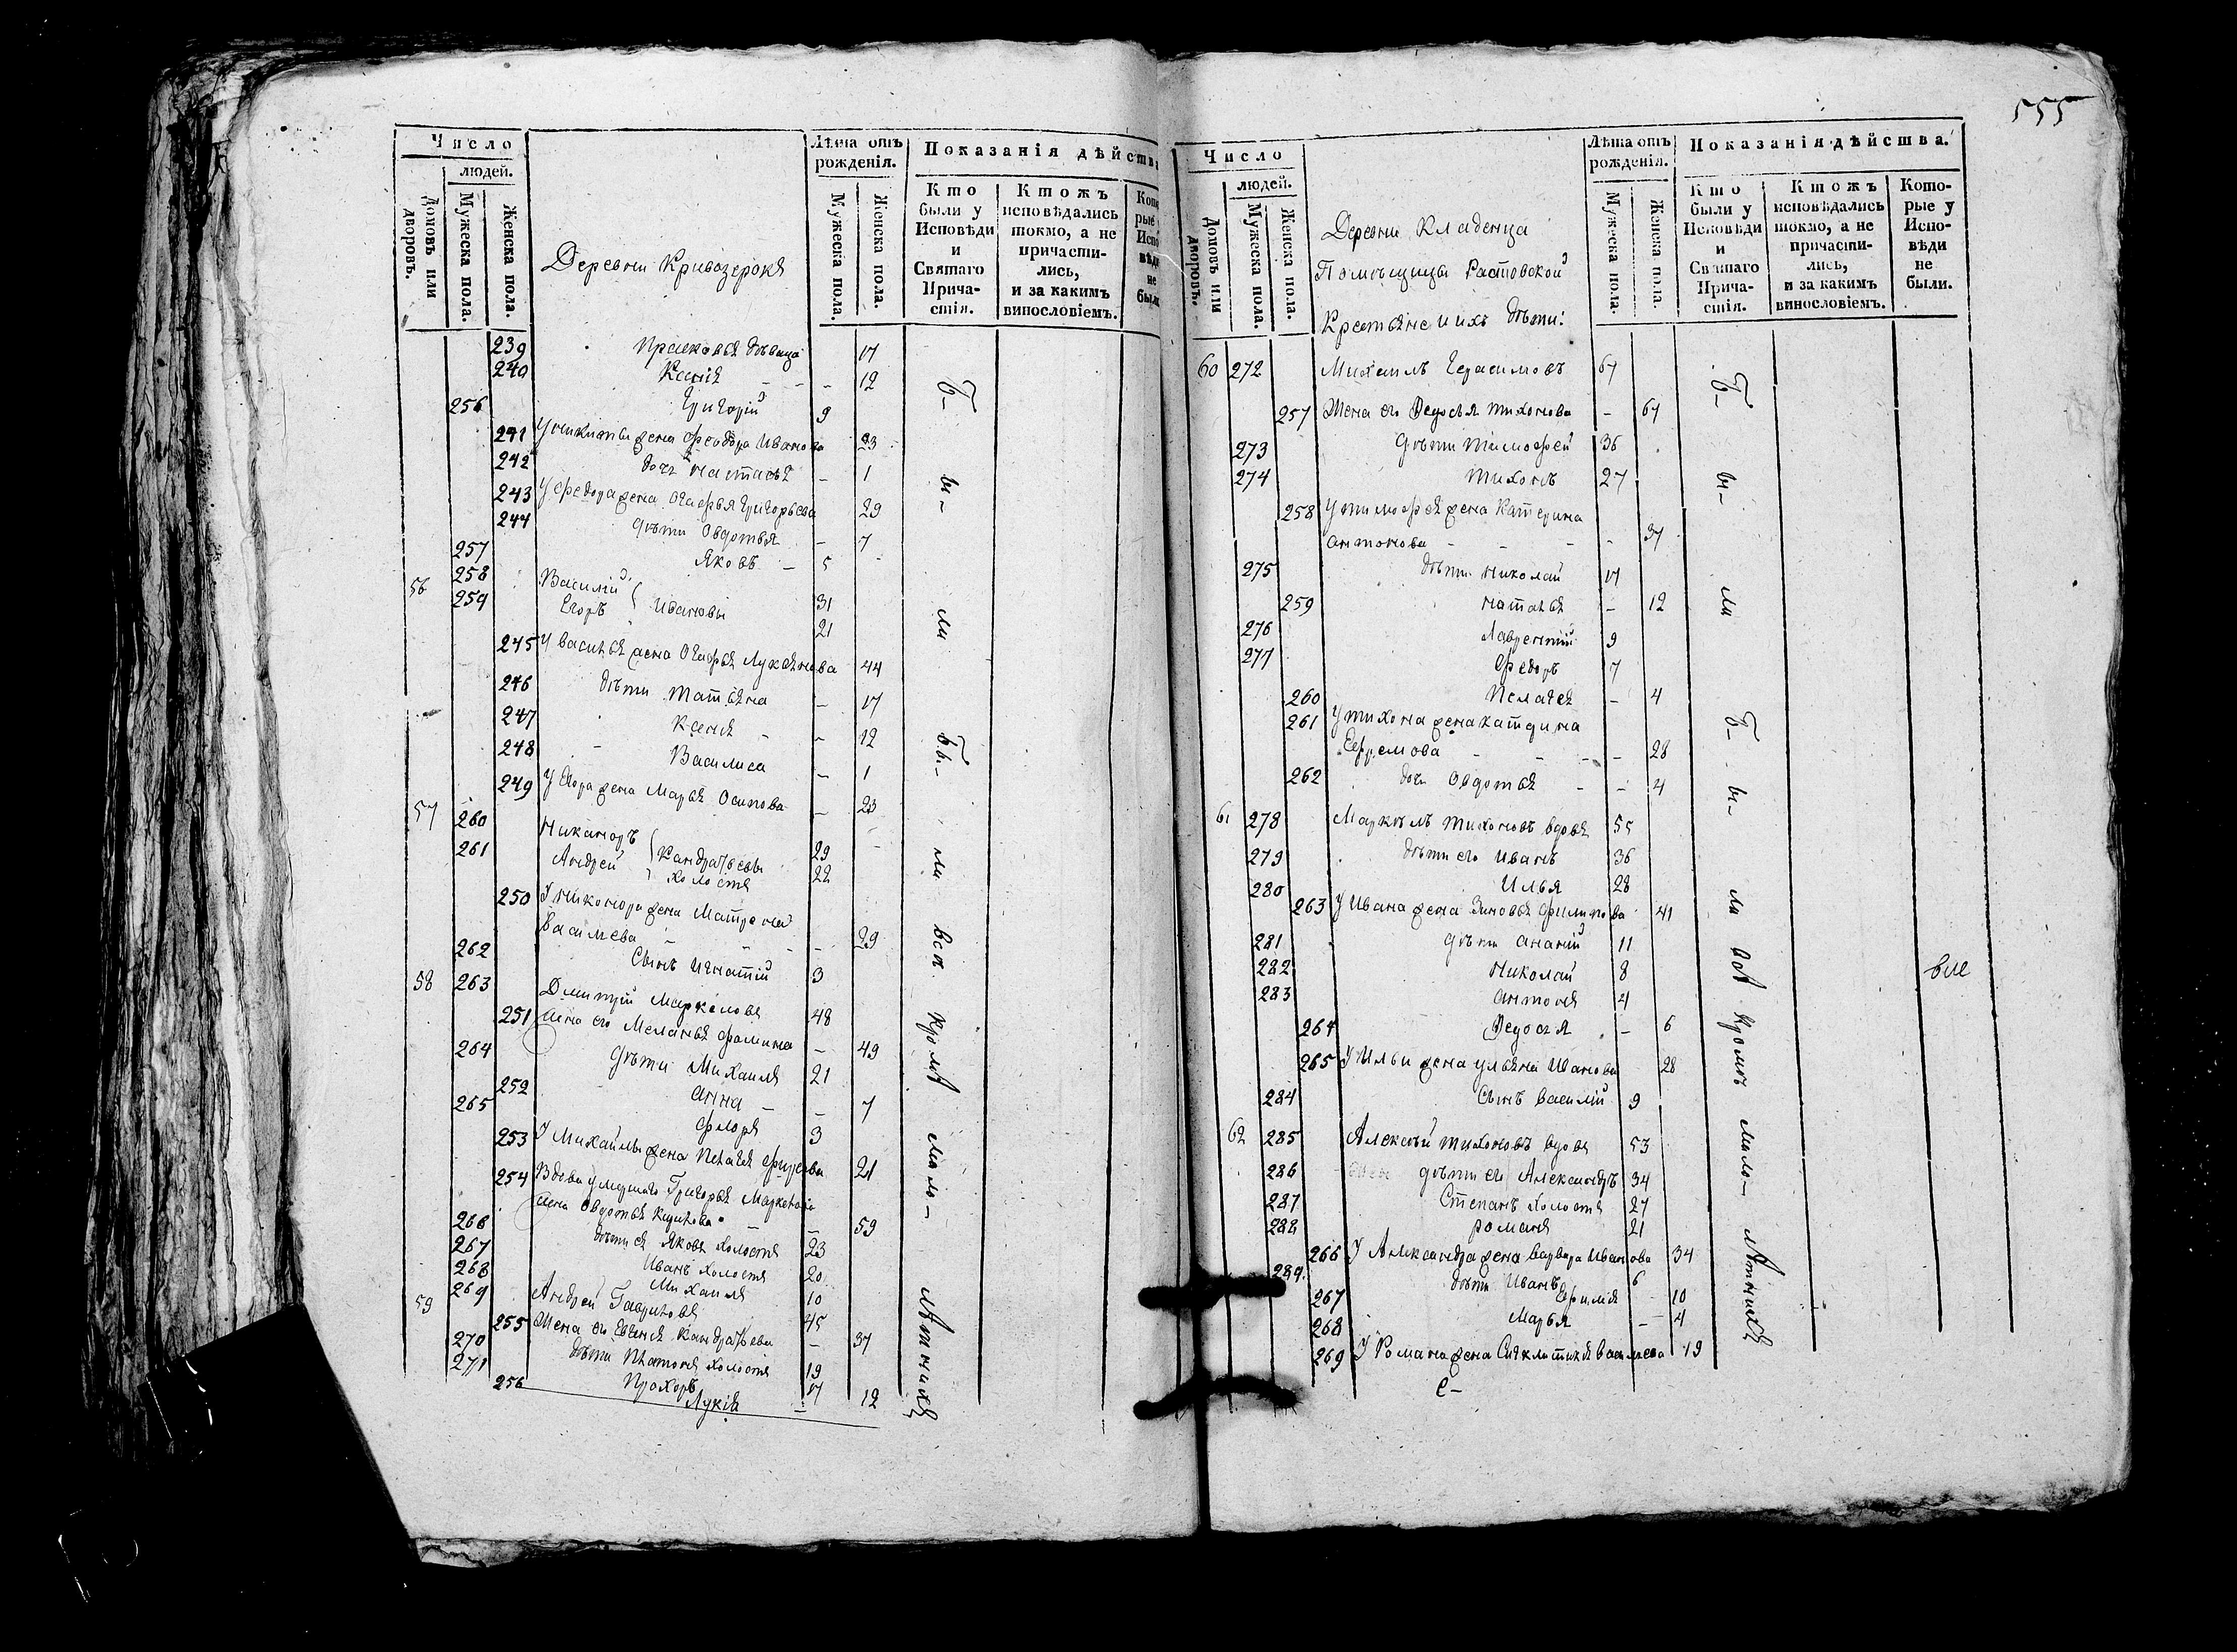 555
Число
людей.
Домовъ или дворовъ.
Мужеска пола.
Женска пола.
Деревни Кривозерокя
Лѣта отъ рожденія.
Мужеска пола.
Женска пола.
Показанія дѣйства
Кто были у Исповѣди и Святаго Причастія.
Ктожъ исповѣдались токмо, а не причастились, и за какимъ винословіемъ.
239 Прасковья дѣвица 17
240 Ксенiя - - - 12
256 Григорій 9
241 У никиты жена Феодора Иванова 23
242 дочь Настасья - 1
243 У Федора жена Огафья Григорьева 29
244 дѣти Овдотья - 7
257 Яковъ - 5
56 258 Василій 31
259 Егоръ Ивановы 21
245 У Василья жена Огафья Лукьянова 44
246 дѣти Татьяна - 17
247 Ксенья - - 12
248 Василиса - 1
249 У Егора жена Марья Осипова - 23
57 260 Никаноръ 29
261 Андрей Кандратьевы 22
холостя
250 У Никонора жена Матрена
Васильева - - - - 29
262 Сынъ Игнатій 3
58 263 Дмитрій Маркеловъ 48
251 жена его Меланья Фомина - 49
264 дѣти Михаилъ 21
252 Анна - - 7
265 Флоръ 3
253 У Михайлы жена Пелагея 21
254 Вдова умершаго Григорья
жена Овдотья - - 59
266 дѣти ея Яковъ холостя 23
267 Иванъ холостя 20
268 Михаилъ 10
59 269 Андрей Гавриловъ 45
255 Жена его Евгенья Кандратьева - 37
270 дѣти Платонъ холостя 19
271 Прохоръ 17
256 Лукія - 12
Бы- ли Бы- ли всѣ кромѣ мало- лѣтнихъ
Число
людей.
Домовъ или дворовъ.
Мужеска пола.
Женска пола.
Деревни Кладенца
Помѣщицы Растовской
Крестьяне и ихъ дѣти:
Лѣта отъ рожденія.
Мужеска пола.
Женска пола.
Показанія дѣйства.
Кто были у Исповѣди и Святаго Причастія.
Ктожъ исповѣдались токмо, а не причастились, и за какимъ винословіемъ.
Которые у Исповѣди не были.
60 272 Михаилъ Герасимовъ 67
257 Жена его Федосья Тихонова - 67
273 дѣти Тимофей 36
274 Тихонъ 27
258 У тимофея жена Катерина
антонова - - - - 37
275 дѣти Николай 17
259 Наталья - 12
276 Лаврентій 9
277 Федоръ 7
260 Пелагея - 4
261 У тихона жена катерина
Ефремова - - - - 28
262 дочь Овдотья - - 4
61 278 Маркелъ Тихоновъ вдовъ 55
279 дѣти его Иванъ 36
280 Илья 28
263 У Ивана жена Зиновья Филипова 41
281 дѣти Ананій 11
282 Николай 8
283 антонъ 4
264 Федосья - 6
265 У Ильи жена Ульяна Иванова 28
284 Сынъ Василій 9
62 285 Алексѣй Тихоновъ вдовъ 53
286 дѣти его Александръ 34
287 Степанъ холостя 27
288 романъ 21
266 У Александра жена Варвара Иванова 34
289 дѣти Иванъ 6
267 10
268 Марья - 4
269 У Романа жена Васильева 19
Бы- ли Бы- ли всѣ кромѣ мало- лѣтнихъ